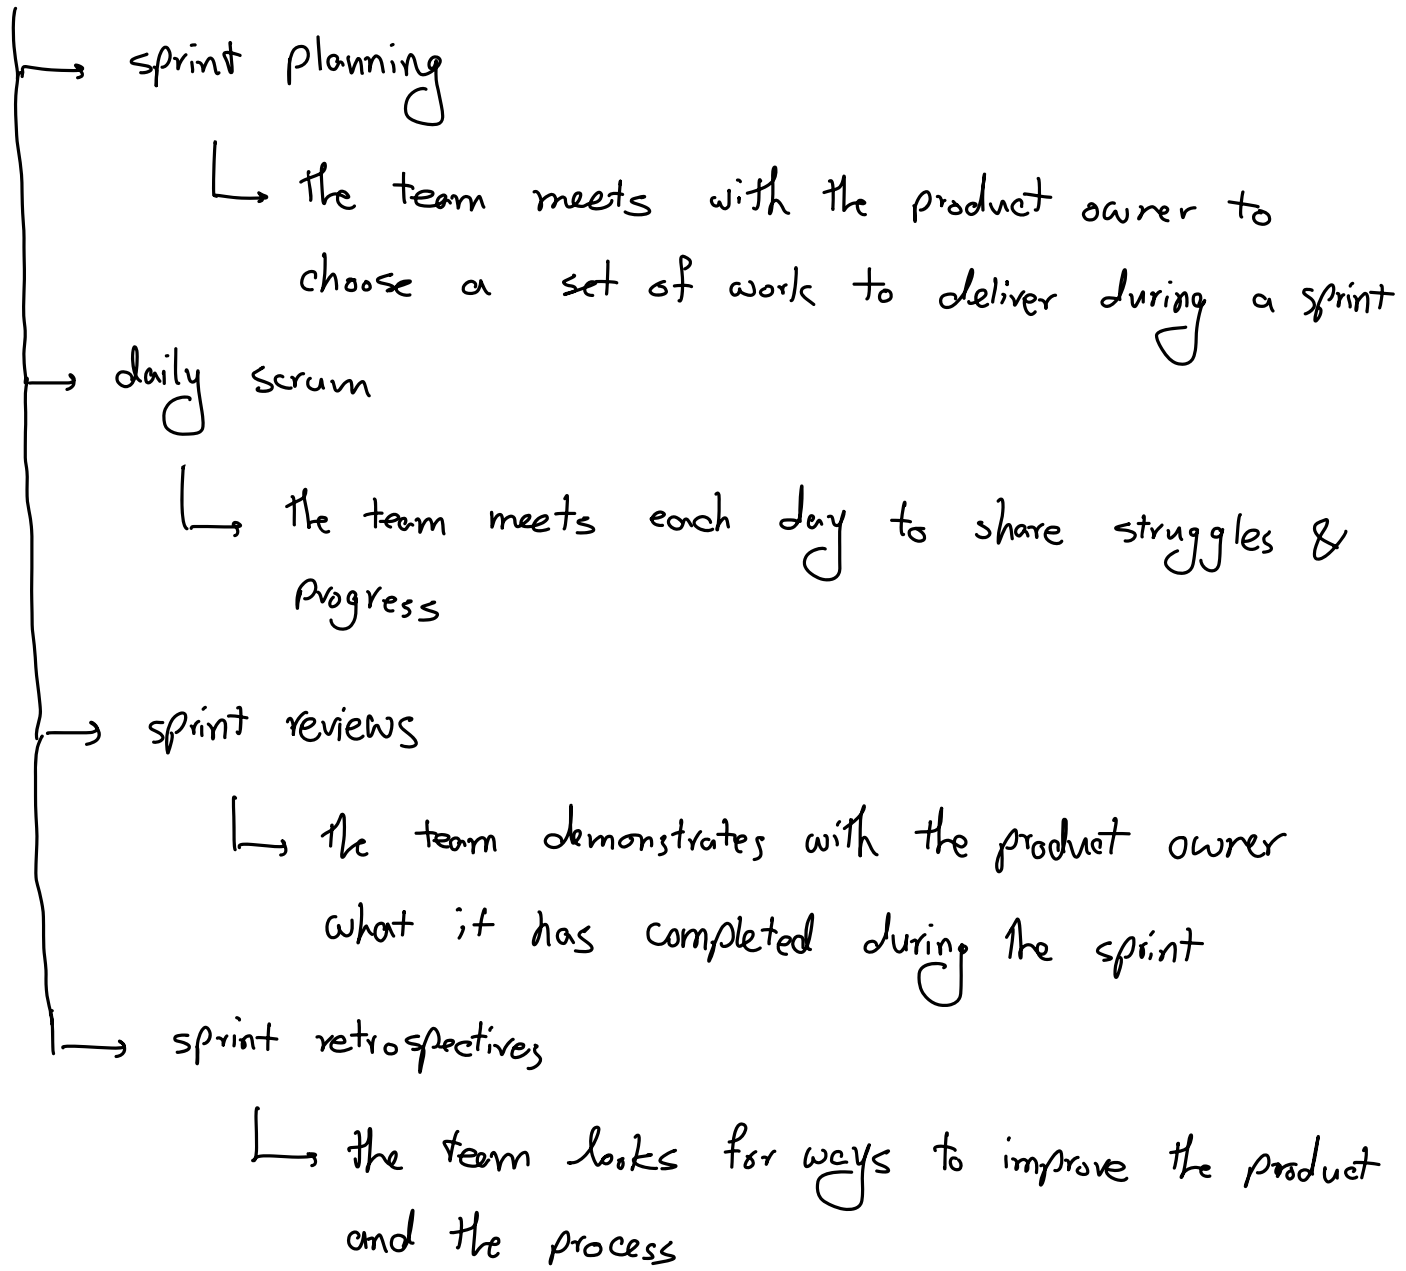 sprint planning
the team meets with the product owner to
choose a set of work to deliver during a sprint
daily scrum
the team meets each day to share struggles &
progress
sprint reviews
the team demonstrates with the product owner
what it has completed during the sprint
sprint retrospectives
the team looks for ways to improve the product
and the process